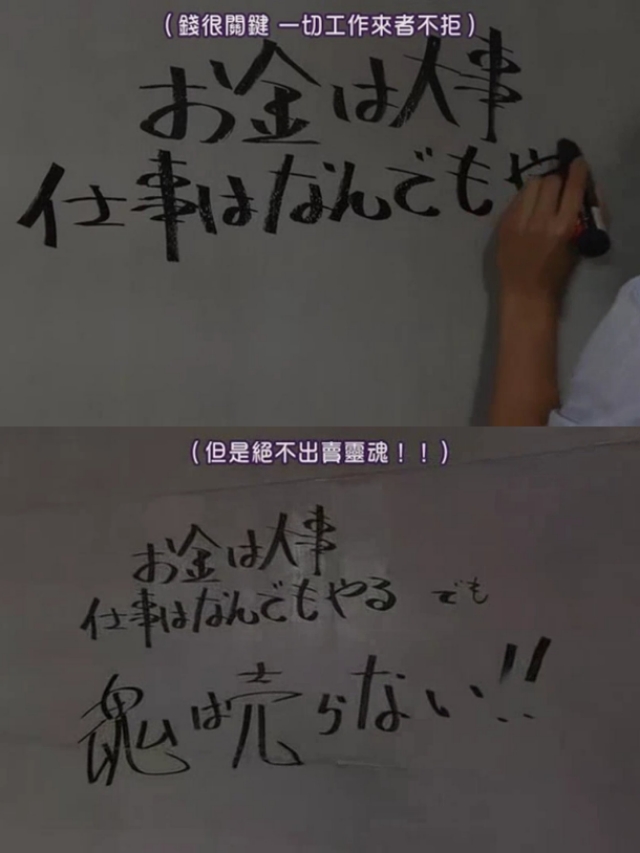 （錢很關鍵 一切工作來者不拒）
お金は大事
仕事はなんでもや
（但是絕不出賣靈魂！！）
お金は大事
仕事はなんでもやる でも
魂は売らない!!